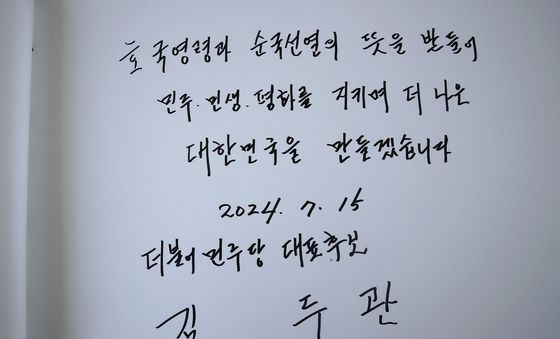 호국영령과 순국선열의 뜻을 받들어
민주·민생·평화를 지키며 더 나은
대한민국을 만들겠습니다
2024. 7. 15
더불어민주당 대표후보
김 두 관